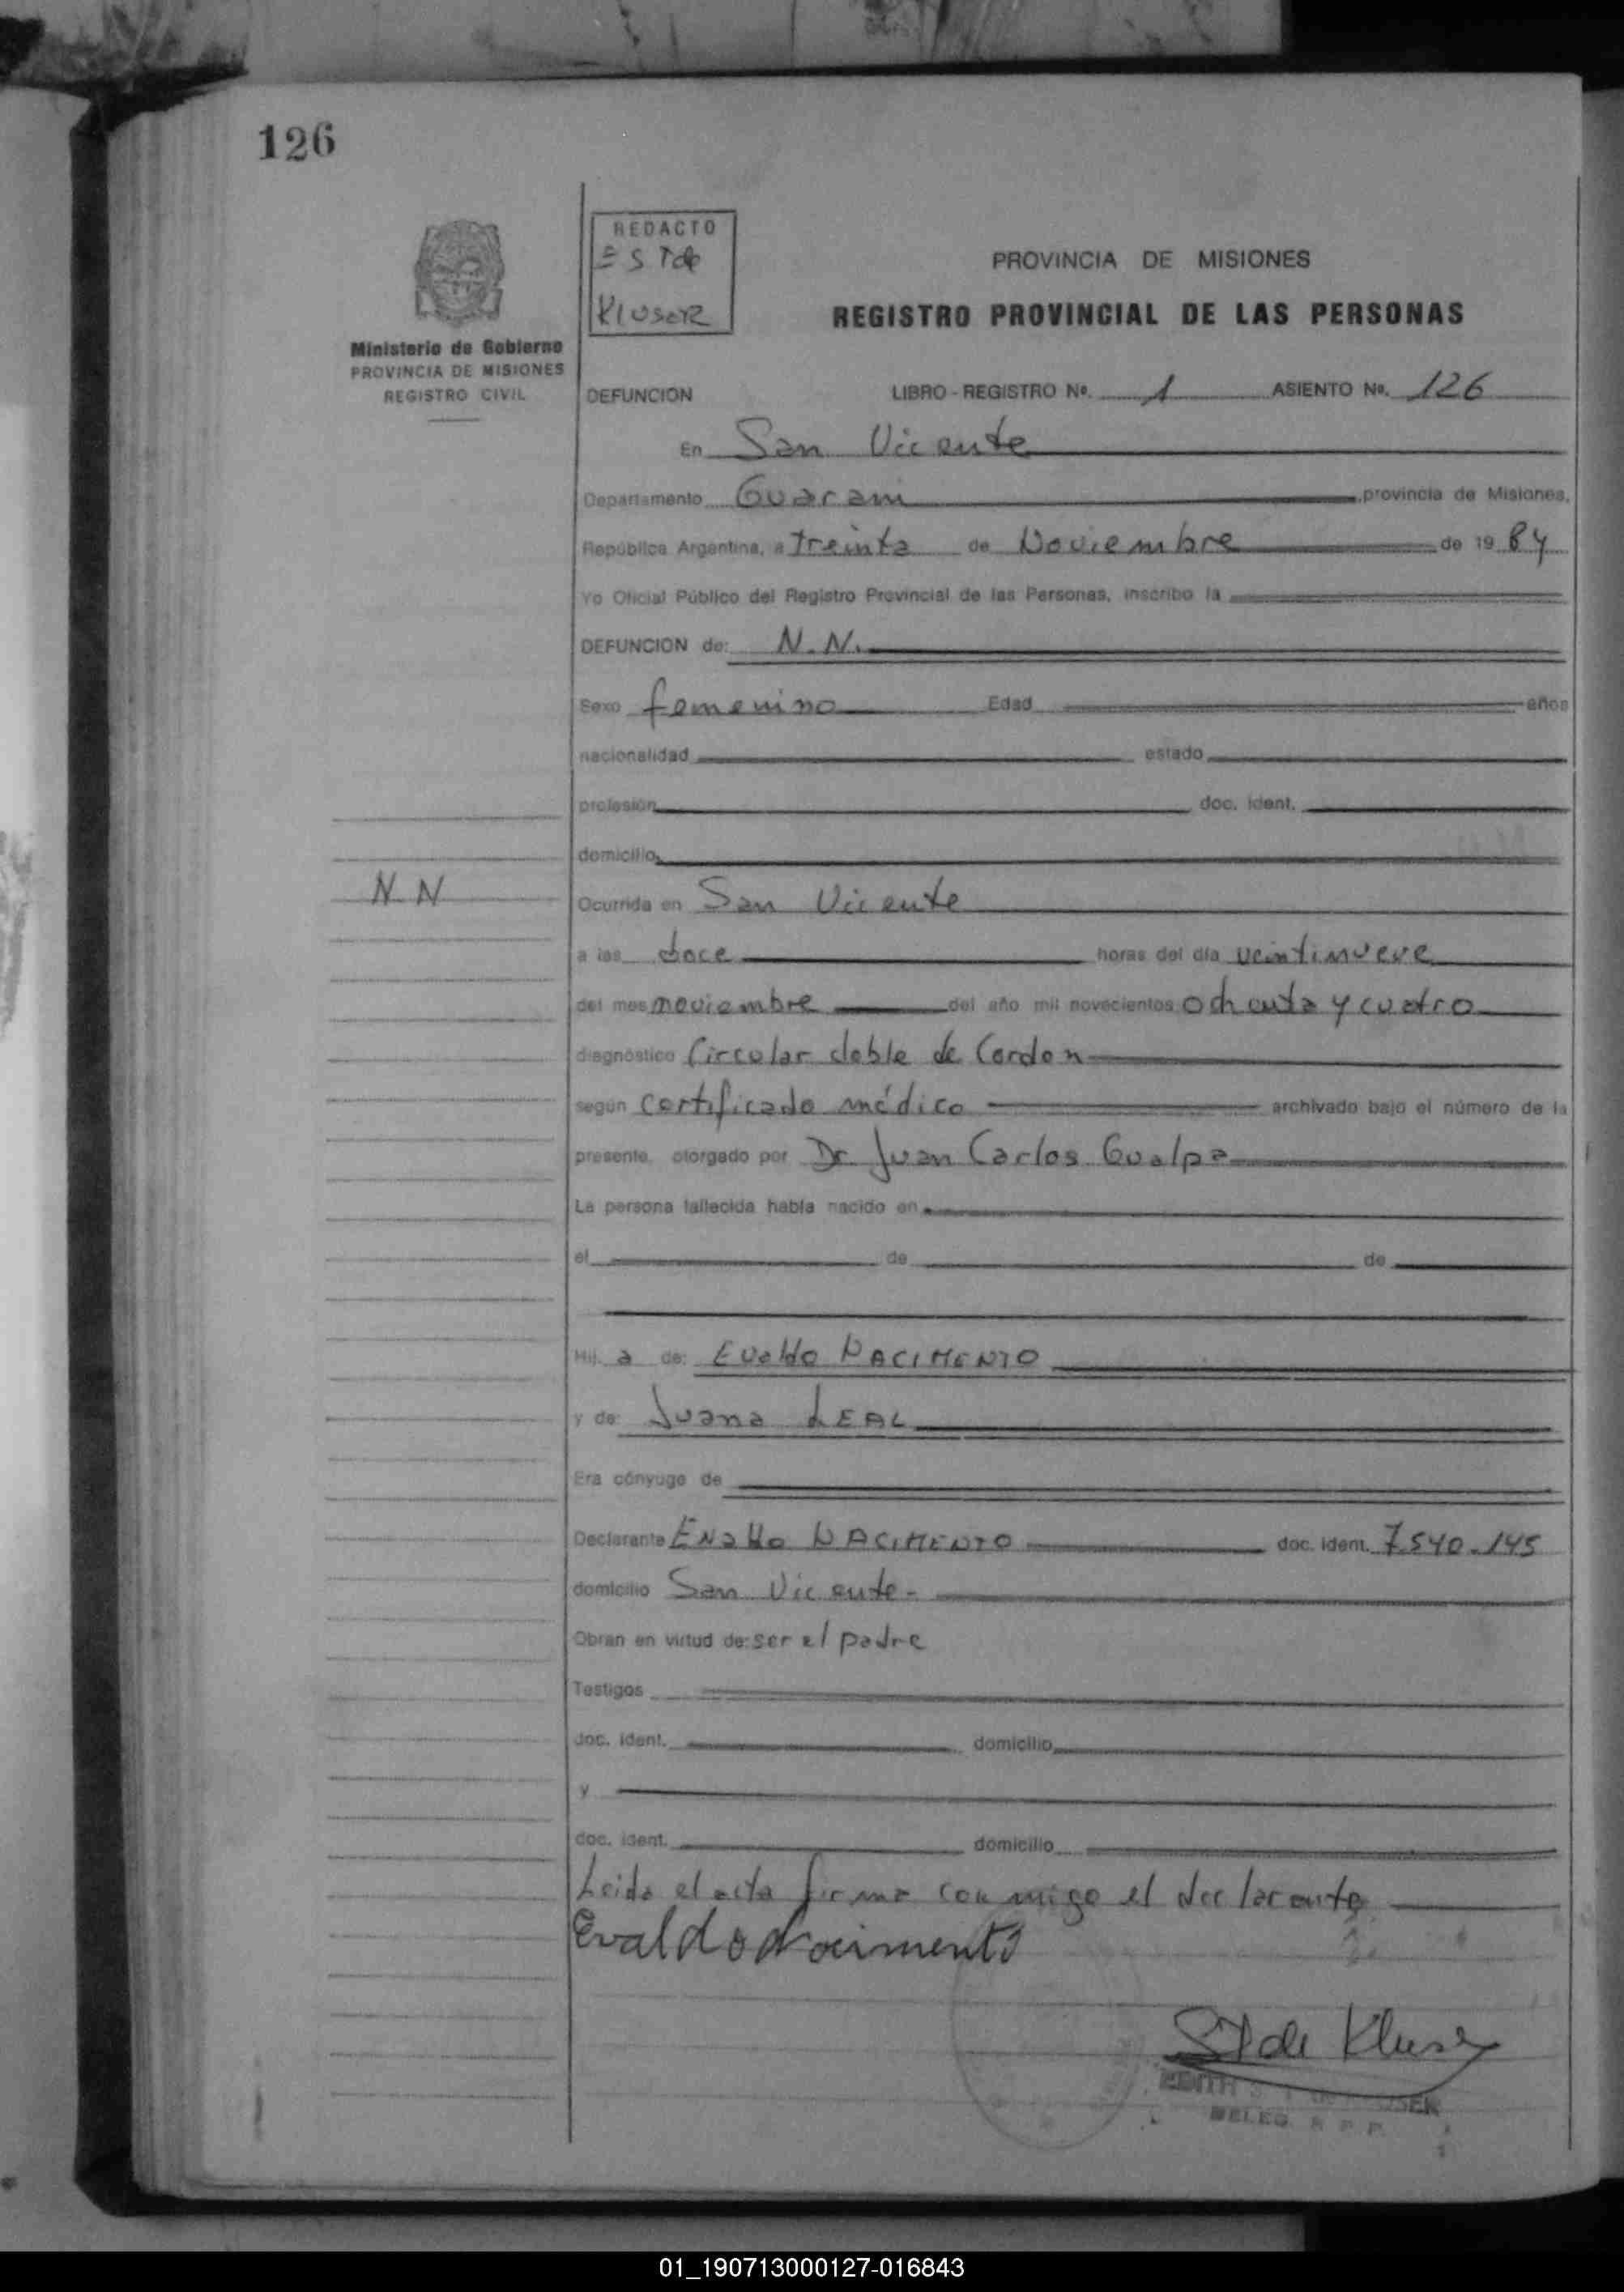 126
REDACTO
E S T de
Kluser
Ministerio de Gobierno
PROVINCIA DE MISIONES
REGISTRO CIVIL
PROVINCIA DE MISIONES
REGISTRO PROVINCIAL DE LAS PERSONAS
DEFUNCION LIBRO - REGISTRO Nº. 1 ASIENTO Nº. 126
En San Vicente
Departamento Guarani provincia de Misiones,
República Argentina, a treinta de Noviembre de 19 84
Yo Oficial Público del Registro Provincial de las Personas, inscribo la
DEFUNCION de: N. N.
Sexo femenino Edad años
nacionalidad estado
profesión doc. ident.
domicilio
N N
Ocurrida en San Vicente
a las doce horas del día veintinueve
del mes noviembre del año mil novecientos ochenta y cuatro
diagnóstico Circular doble de Cordon
según certificado médico archivado bajo el número de la
presente, otorgado por Dr. Juan Carlos Gualpa
La persona fallecida había nacido en
el de de
Hij a de: Evaldo NACIMENTO
y de: Juana LEAL
Era cónyuge de
Declarante Evaldo NACIMENTO doc. ident. 7.540.145
domicilio San Vicente -
Obran en virtud de: ser el padre
Testigos
doc. ident. domicilio
y
doc. ident. domicilio
Leida el acta firma con migo el declarante
Evaldo Nacimento
ST de Kluser
EDITH S. T. de KLUSER
DELEG. R P P
01_190713000127-016843